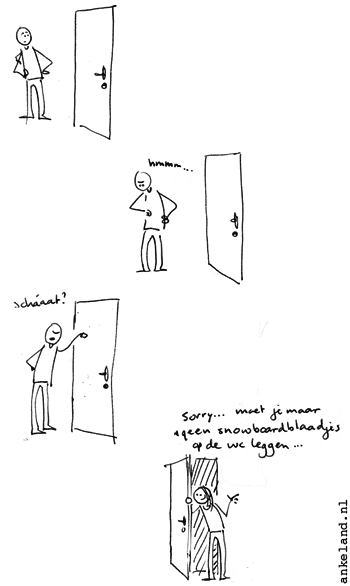 hmmm...
scháaat?
sorry... moet je maar
geen snowboardblaadjes
op de wc leggen...
enkeland.nl